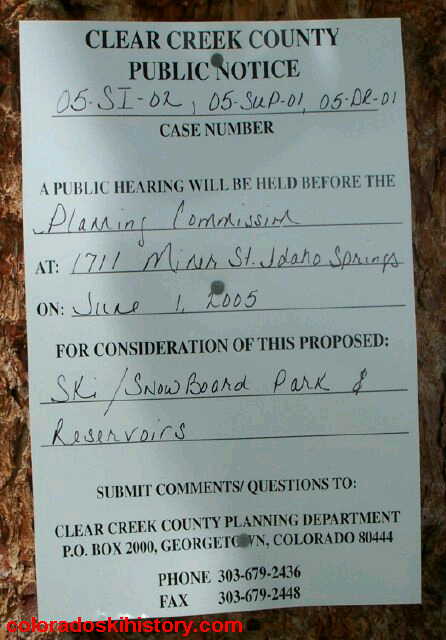 CLEAR CREEK COUNTY
PUBLIC NOTICE
05-SI-02, 05-SUP-01, 05-DR-01
CASE NUMBER
A PUBLIC HEARING WILL BE HELD BEFORE THE
Planning Commission
AT: 1711 Miner St. Idaho Springs
ON: June 1, 2005
FOR CONSIDERATION OF THIS PROPOSED:
Ski/SnowBoard Park &
Reservoirs
SUBMIT COMMENTS/ QUESTIONS TO:
CLEAR CREEK COUNTY PLANNING DEPARTMENT
P.O. BOX 2000, GEORGETOWN, COLORADO 80444
PHONE 303-679-2436
FAX 303-679-2448
coloradoskihistory.com